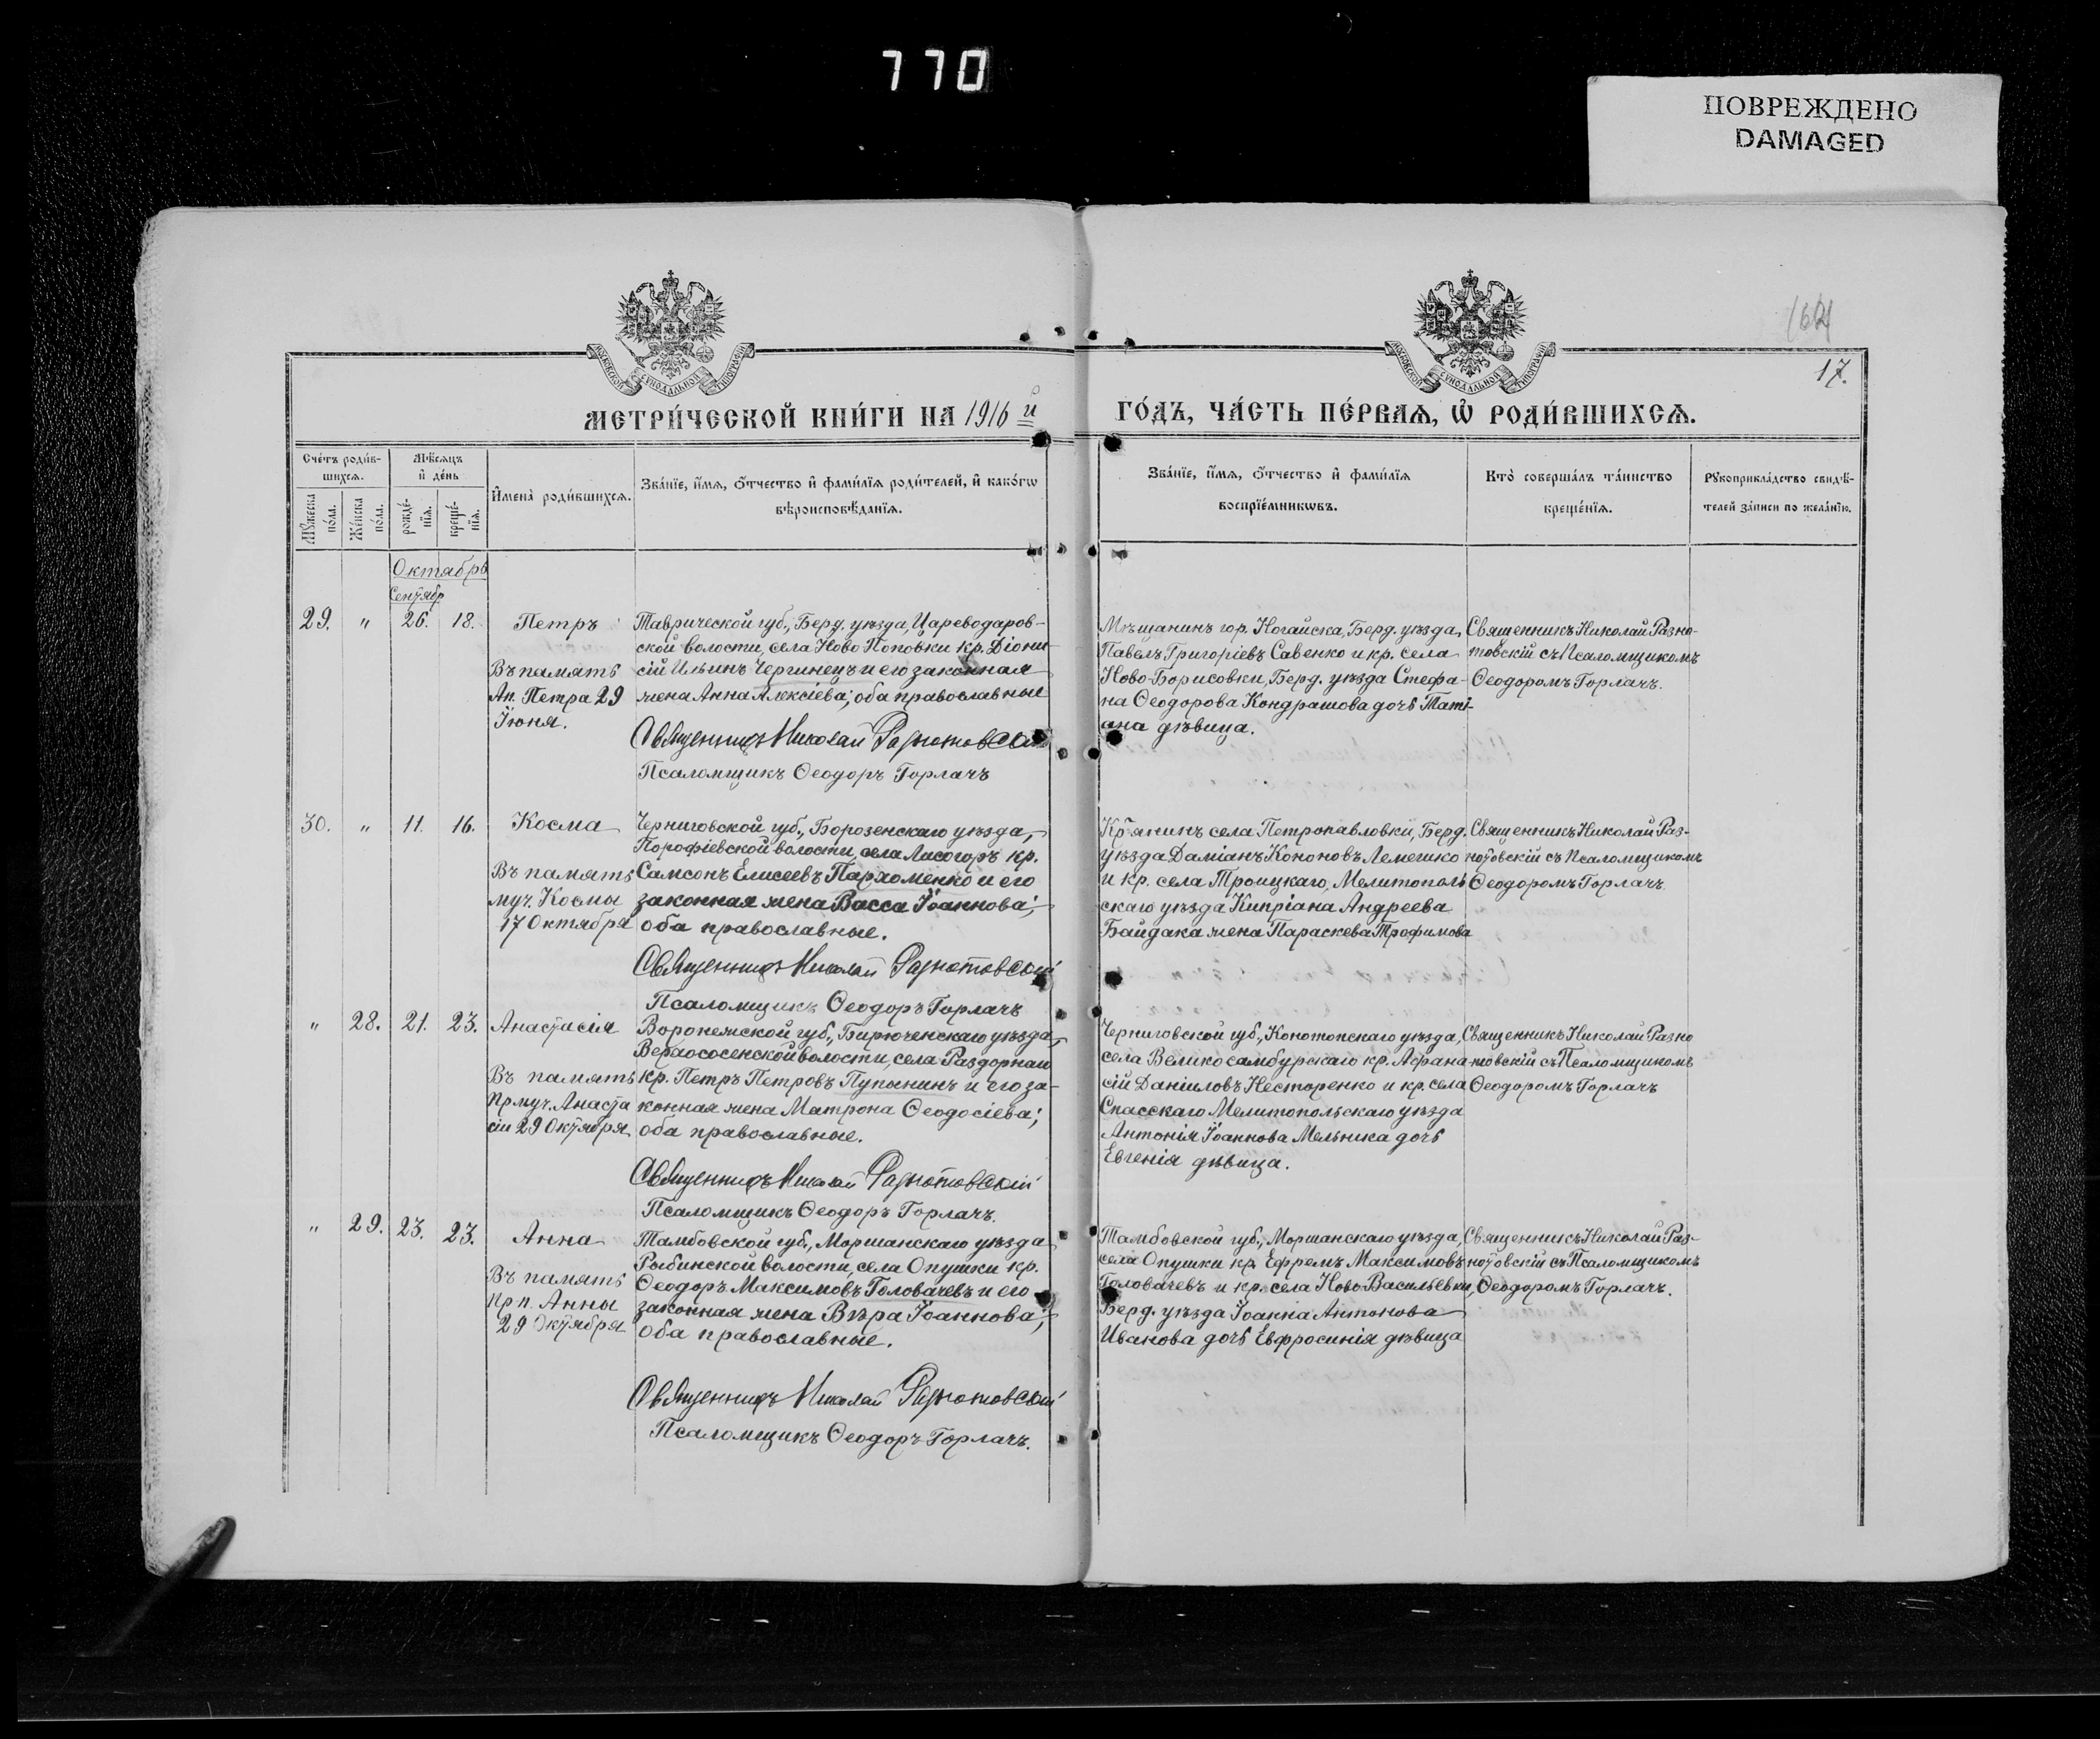 770
ПОВРЕЖДЕНО
DAMAGED
17.
МОСКОВСКОЙ СѴНОДАЛЬНОЙ ТИПОГРАФІИ
МОСКОВСКОЙ СѴНОДАЛЬНОЙ ТИПОГРАФІИ
МЕТРИ́ЧЕСКОЙ КНИ́ГИ НА 1916 й
ГО́ДЪ, ЧА́СТЬ ПЕ́РВАЯ, Ѡ҆ РОДИ́ВШИХСЯ.
Сче́тъ роди́в-
шихся.
Мѣ́сяцъ
и҆ де́нь
Мꙋ́жеска
по́ла.
Же́нска
по́ла.
рожде́-
нїя.
креще́-
нїя.
И҆мена̀ роди́вшихся.
Зва́нїе, и҆́мя, ѻ҆́тчество и҆ фами́лїя роди́телей, и҆ како́гѡ
вѣроисповѣ́данїя.
Зва́нїе, и҆́мя, ѻ҆́тчество и҆ фами́лїя
воспрїе́мникѡвъ.
Кто̀ соверша́лъ та́инство
креще́нїя.
Рꙋкоприкла́дство свидѣ́-
телей за́писи по жела́нїю.
Октябрь
Сентябр
29. " 26. 18. Петръ
Въ память
Ап. Петра 29
Іюня.
Таврической губ., Берд. уѣзда, Цареводаров-
ской волости, села Ново Поповки кр. Діони-
сій Ильинъ Чергинецъ и его законная
жена Анна Алексіева; оба православные
Священникъ Николай Разнотовскій
Псаломщикъ Ѳеодоръ Горлачъ
Мѣщанинъ гор. Ногайска, Берд. уѣзда,
Павелъ Григоріевъ Савенко и кр. села
Ново-Борисовки, Берд. уѣзда Стефа-
на Ѳеодорова Кондрашова дочь Таті-
ана дѣвица.
Священникъ Николай Разно-
товскій съ Псаломщикомъ
Ѳеодоромъ Горлачъ.
30. " 11. 16. Косма
Въ память
муч. Космы
17 Октября
Черниговской губ., Борозенскаго уѣзда,
Порофіевской волости, села Лисогоръ кр.
Самсонъ Елисеевъ Пархоменко и его
законная жена Васса Іоаннова;
оба православные.
Священникъ Николай Разнотовскій
Псаломщикъ Ѳеодоръ Горлачъ
Кр-янинъ села Петропавловки, Берд.
уѣзда Даміанъ Кононовъ Лемешко
и кр. села Троицкаго, Мелитополь
скаго уѣзда Кипріана Андреева
Байдака жена Параскева Трофимова
Священникъ Николай Раз-
нотовскій съ Псаломщикомъ
Ѳеодоромъ Горлачъ
" 28. 21. 23. Анастасія
Въ память
Прмуч. Анаста
сіи 29 Октября
Воронежской губ., Бирюченскаго уѣзда,
Верхососенской волости, села Раздорнаго
кр. Петръ Петровъ Пупынинъ и его за-
конная жена Матрона Ѳеодосіева;
оба православные.
Священникъ Николай Разнотовскій
Псаломщикъ Ѳеодоръ Горлачъ.
Черниговской губ., Конотопскаго уѣзда,
села Велико самбурскаго кр. Афана
сій Даніиловъ Несторенко и кр. села
Спасскаго Мелитопольскаго уѣзда
Антонія Іоаннова Мельника дочь
Евгенія дѣвица.
Священникъ Николай Разно
товскій съ Псаломщикомъ
Ѳеодоромъ Горлачъ
" 29. 23. 23. Анна
Въ память
Прп. Анны
29 Октября
Тамбовской губ., Моршанскаго уѣзда
Рыбинской волости, села Опушки кр.
Ѳеодоръ Максимовъ Головачевъ и его
законная жена Вѣра Іоаннова;
оба православные.
Священникъ Николай Разнотовскій
Псаломщикъ Ѳеодоръ Горлачъ.
Тамбовской губ., Моршанскаго уѣзда,
села Опушки кр. Ефремъ Максимовъ
Головачевъ и кр. села Ново-Васильевки,
Берд. уѣзда Іоанна Антонова
Иванова дочь Евфросинія дѣвица
Священникъ Николай Раз-
нотовскій съ Псаломщикомъ
Ѳеодоромъ Горлачъ.